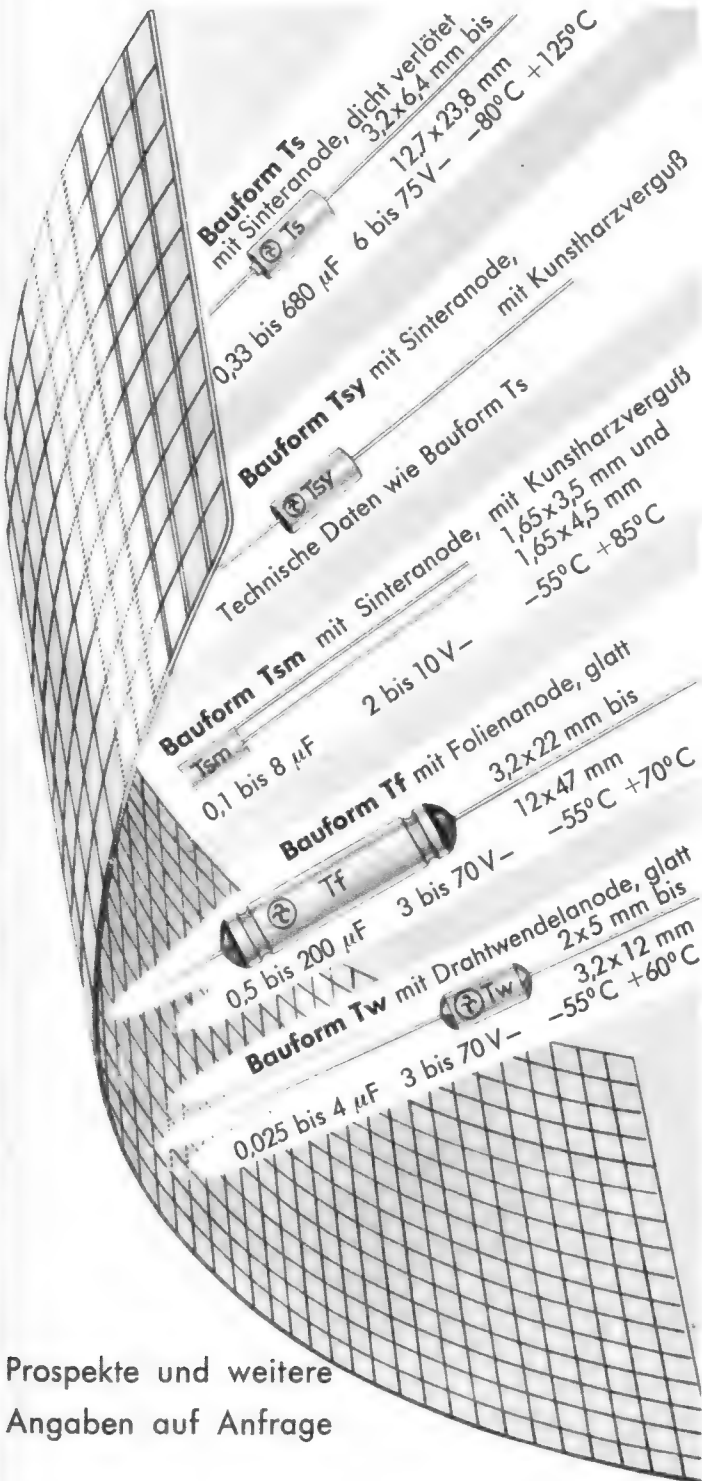 Bauform Ts
mit Sinteranode, dicht verlötet
3,2x6,4 mm bis
12,7x23,8 mm
Ts
0,33 bis 680 µF 6 bis 75 V– –80°C +125°C
Bauform Tsy mit Sinteranode,
mit Kunstharzverguß
Tsy
Technische Daten wie Bauform Ts
Bauform Tsm mit Sinteranode, mit Kunstharzverguß
1,65x3,5 mm und
1,65x4,5 mm
Tsm
0,1 bis 8 µF 2 bis 10 V– –55°C +85°C
Bauform Tf mit Folienanode, glatt
3,2x22 mm bis
12x47 mm
Tf
0,5 bis 200 µF 3 bis 70 V– –55°C +70°C
Bauform Tw mit Drahtwendelanode, glatt
2x5 mm bis
3,2x12 mm
Tw
0,025 bis 4 µF 3 bis 70 V– –55°C +60°C
Prospekte und weitere
Angaben auf Anfrage